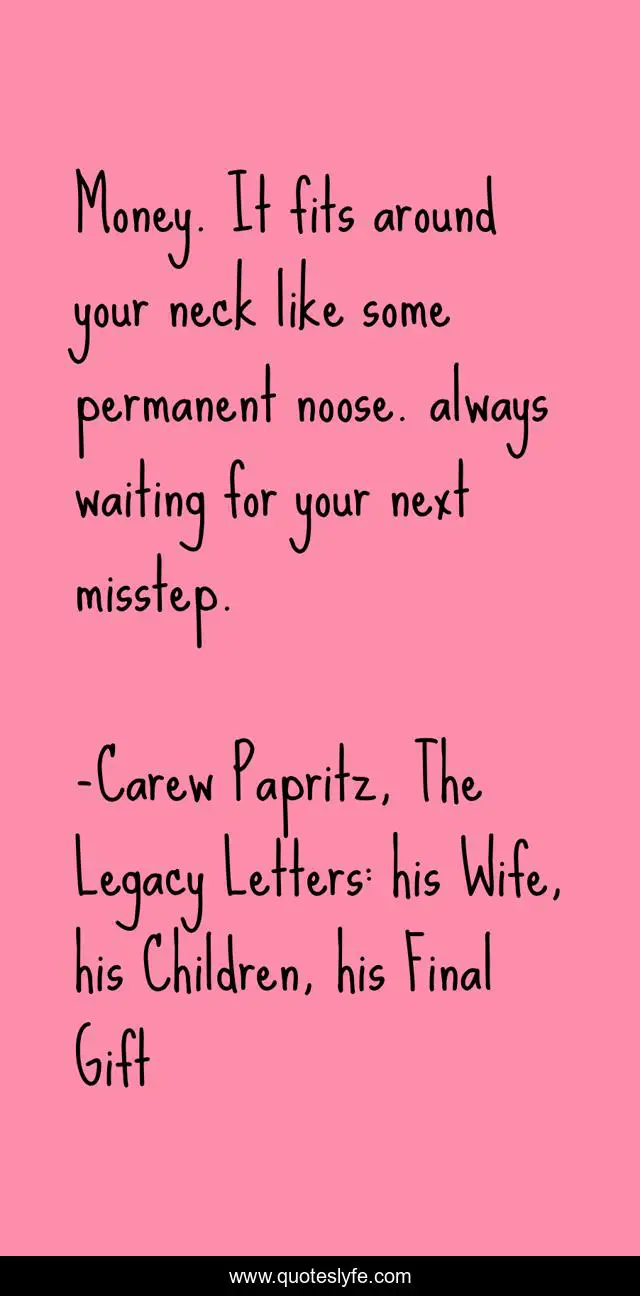 Money. It fits around
your neck like some
permanent noose. always
waiting for your next
misstep.
-Carew Papritz, The
Legacy Letters: his Wife,
his Children, his Final
Gift
www.quoteslyfe.com